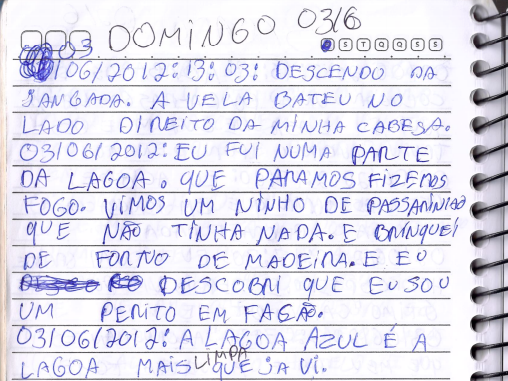 03 DOMINGO 03/6
D S T Q Q S S
/06/2012: 13: 03: DESCENDO DA
JANGADA. A VELA BATEU NO
LADO DIREITO DA MINHA CABESA.
03/06/2012: EU FUI NUMA PARTE
DA LAGOA. QUE PARAMOS FIZEMOS
FOGO. VIMOS UM NINHO DE PASSARINHO
QUE NÃO TINHA NADA. E BRINQUEI
DE FORNO DE MADEIRA. E EU
DESCOBRI QUE EU SOU
UM PERITO EM FACÃO.
03/06/2012: A LAGOA AZUL É A
LAGOA MAIS LIMPA QUE JA VI.